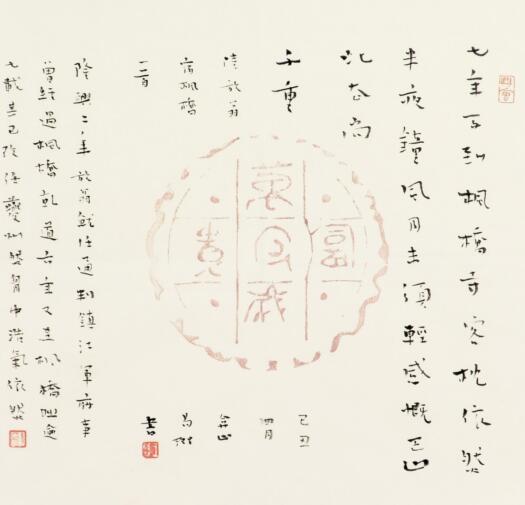 七年不到楓橋寺客枕依然
半夜鐘風月未須輕感慨巴山
此去尚
千重
陸放翁
宿楓橋
一首
隆興二年放翁就任通判鎮江軍府事
曾經過楓橋乾道六年又至楓橋
七載其已除任夔州然胸中浩氣依然
富
貴
萬
己丑
四月
書